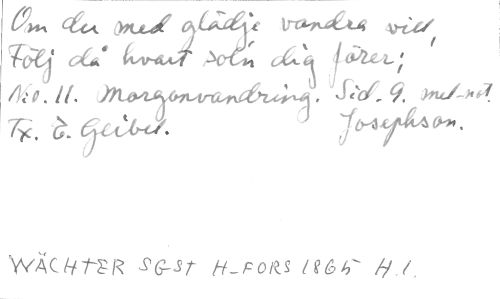 Om du med glädje vandra vill,
Följ då hvart sol'n dig förer;
No. 11. Morgonvandring. Sid. 9. mel-not.
Tx. E. Geibel. Josephson.
WÄCHTER SGST H-FORS 1865 H.1.